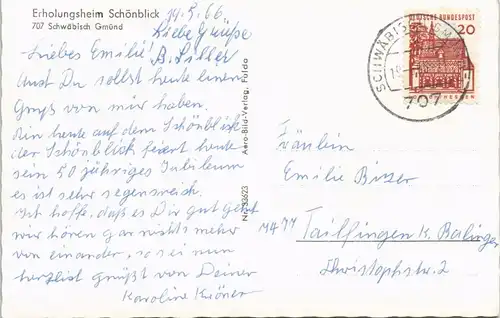 Erholungsheim Schönblick
707 Schwäbisch Gmünd
19.5.66
Liebe Grüße
B. Siller
Liebes Emilie!
Auch Du sollst heute einen
Gruß von mir haben.
Bin heute auf dem Schönblick
der Schönblick feiert heute
sein 50 jähriges Jubiläum
es ist sehr segensreich.
Ich hoffe, daß es Dir gut geht
wir hören gar nichts mehr
von einander, so sei nun
herzlist grüßt von Deiner
Karoline Kröner
Nr. 33623
Aero-Bild-Verlag, Fulda
SCHWÄBISCH GM
707
DEUTSCHE BUNDESPOST
20
HESSEN
Fräulein
Emilie Bitzer
7477
Tailfingen k. Balingen
Christophstr. 2